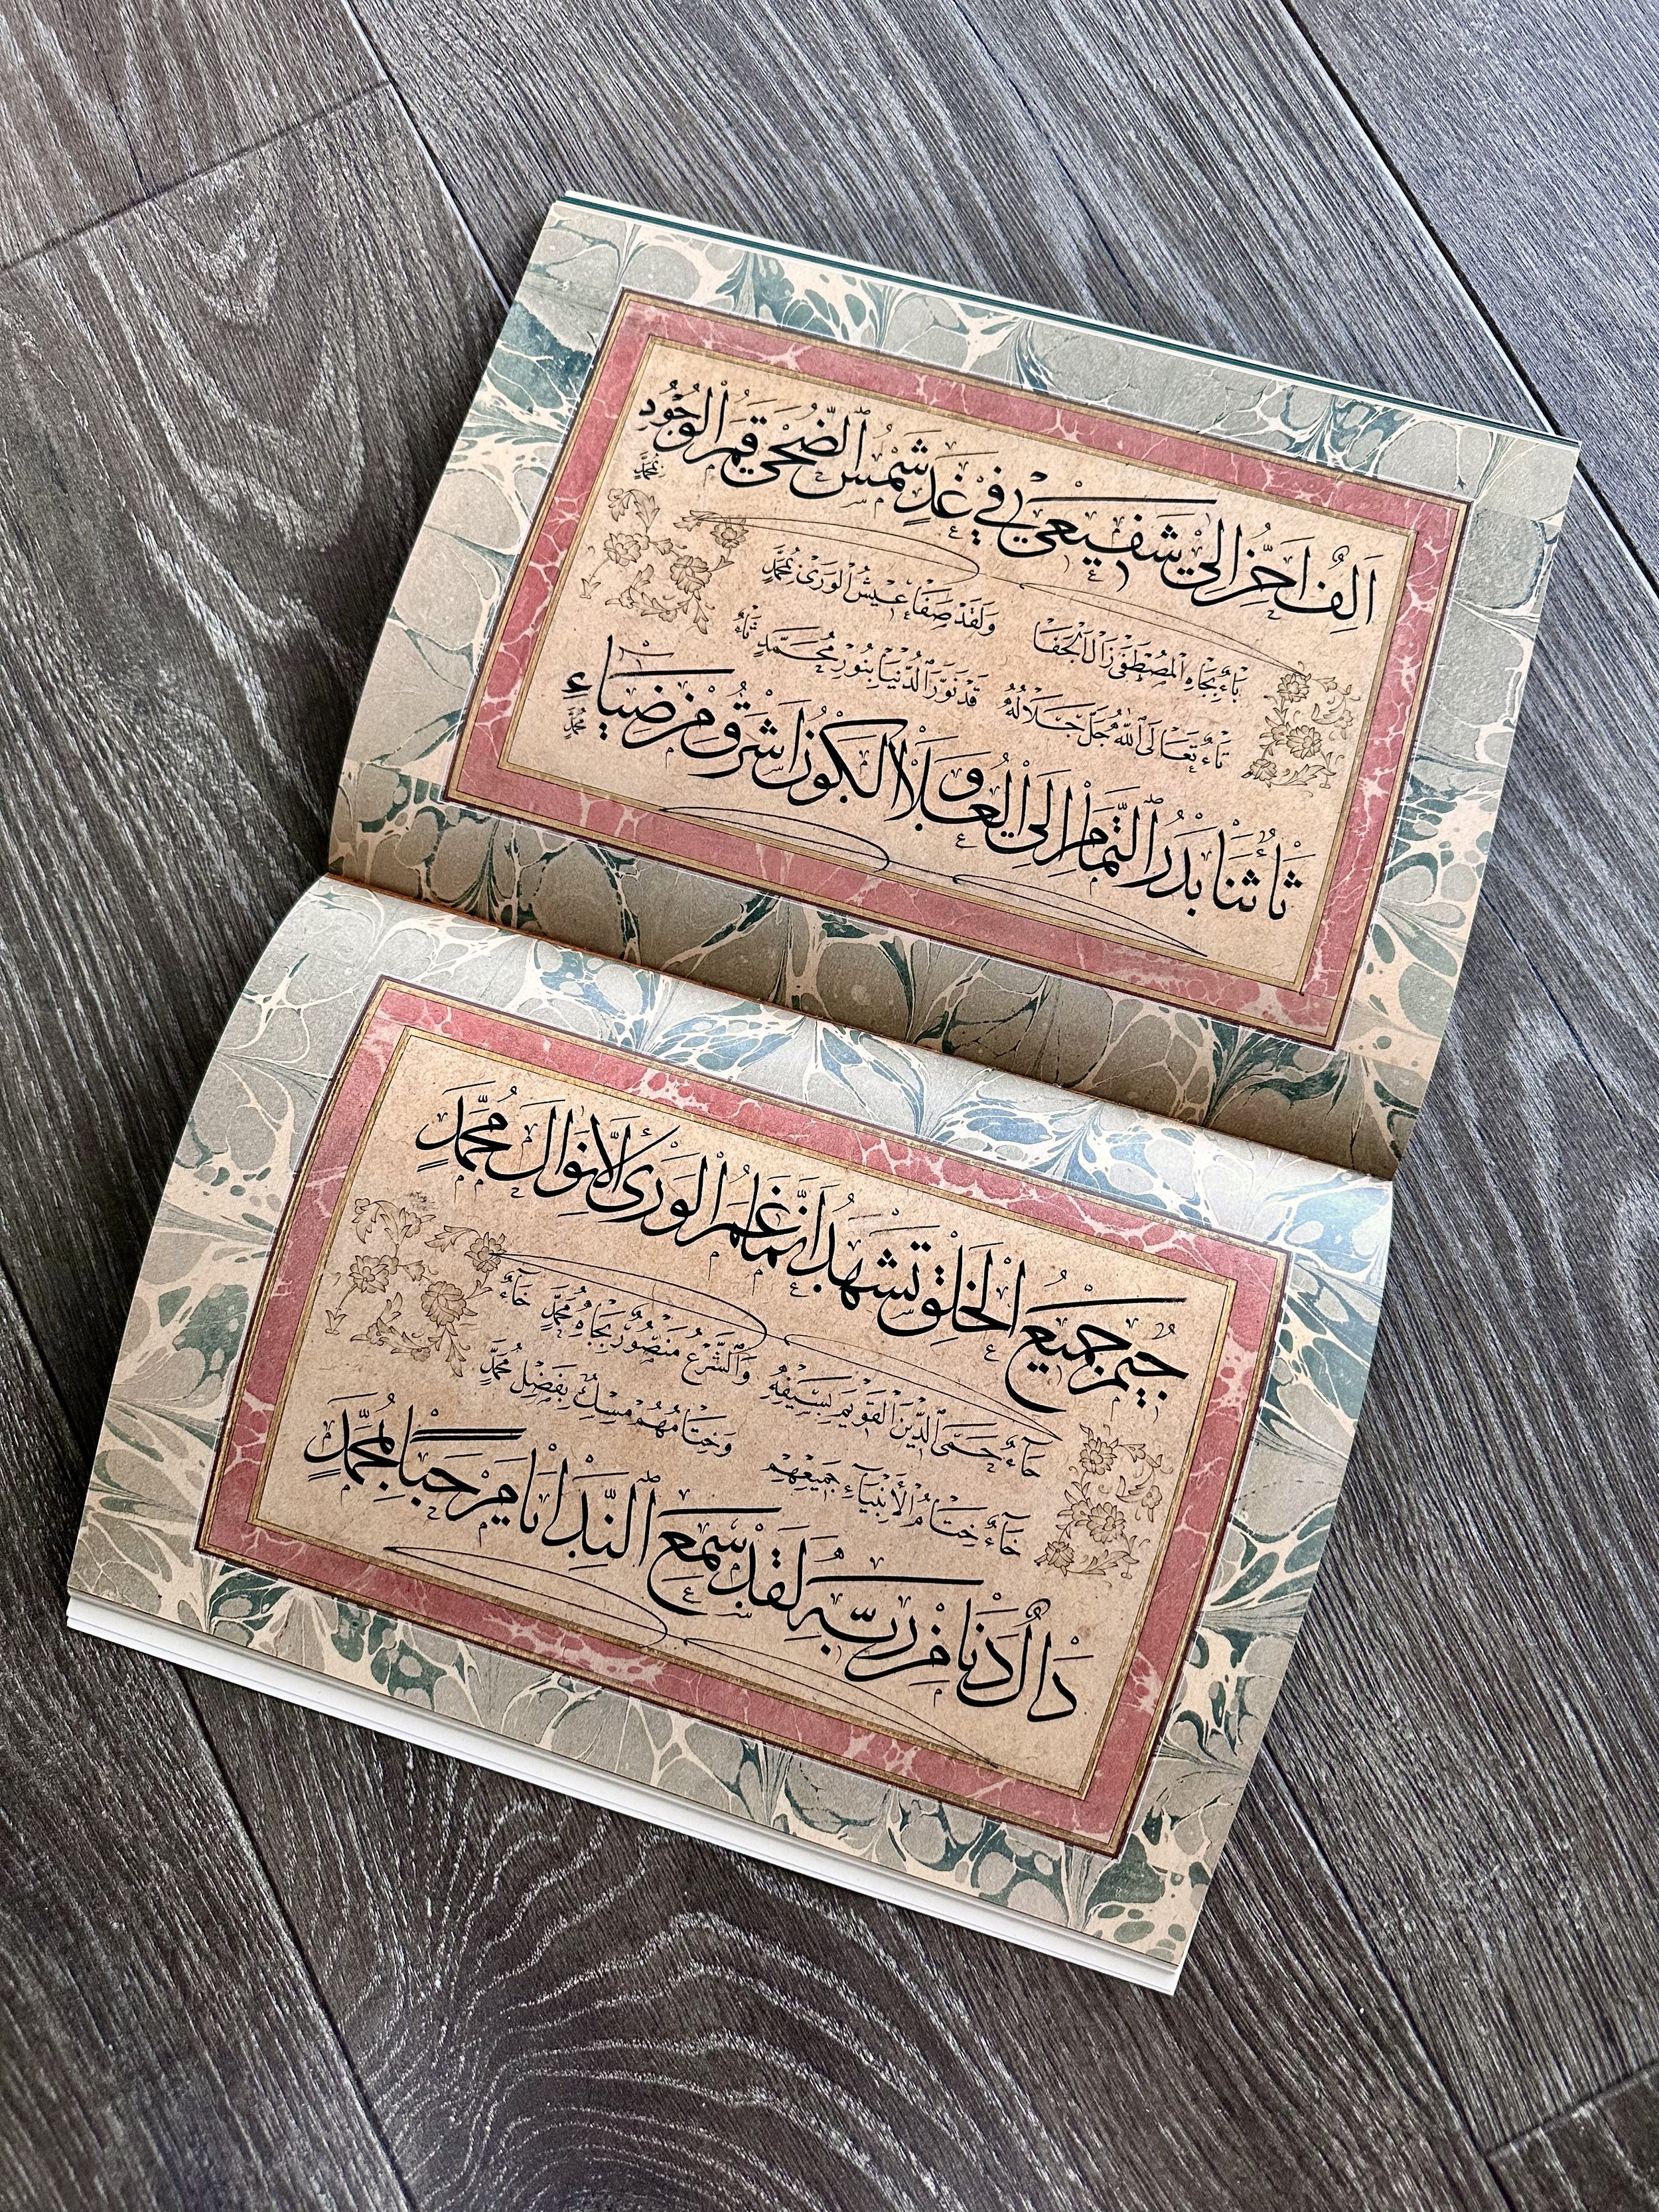 اَلِفٌ اُحَرِّزُ اِلٰى شَفِيعِي فِي غَدٍ شَمْسِ الضُّحٰى قَمَرِ الْوُجُودِ مُحَمَّدٍ
بَاءٌ بِجَاهِ الْمُصْطَفٰى زَالَ الْجَفَا وَلَقَدْ صَفَا عَيْشُ الْوَرٰى بِمُحَمَّدٍ
تَاءٌ تَعَالَى اللّٰهُ جَلَّ جَلَالُهُ قَدْ نَوَّرَ الدُّنْيَا بِنُورِ مُحَمَّدٍ ثَاءٌ
ثَاءٌ ثَنَا بَدْرِ التَّمَامِ اِلَى الْعُلَا وَالْكَوْنُ اَشْرَقَ مِنْ ضِيَاءِ مُحَمَّدٍ
جِيمٌ جَمِيعُ الْخَلْقِ تَشْهَدُ اَنَّمَا غَمَرَ الْوَرٰى اِلَّا نَوَالُ مُحَمَّدٍ
حَاءٌ حَمَى الدِّينَ الْقَوِيمَ بِسَيْفِهِ وَالشَّرْعُ مَنْصُورٌ بِجَاهِ مُحَمَّدٍ خَاءٌ
خَاءٌ خِتَامُ الْاَنْبِيَاءِ جَمِيعِهِمْ وَخِتَامُهُمْ مِسْكٌ بِفَضْلِ مُحَمَّدٍ
دَالٌ دَنَا مِنْ رَبِّهِ لَقَدْ سَمِعَ النِّدَا نَا مَرْحَبًا بِمُحَمَّدٍ